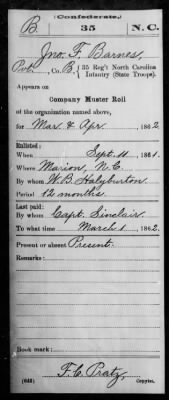 (Confederate.)
B 35 N.C.
Jno. F. Barnes
Pvt., Co. B, 35 Reg't North Carolina
Infantry (State Troops).
Appears on
Company Muster Roll
of the organization named above,
for Mar. & Apr., 1862.
Enlisted:
When Sept. 11, 1861.
Where Marion, N.C.
By whom W.B. Halyburton
Period 12 months.
Last paid:
By whom Capt. Sinclair.
To what time March 1, 1862.
Present or absent Present.
Remarks:
Book mark:
F. C. Pratz,
(642) Copyist.